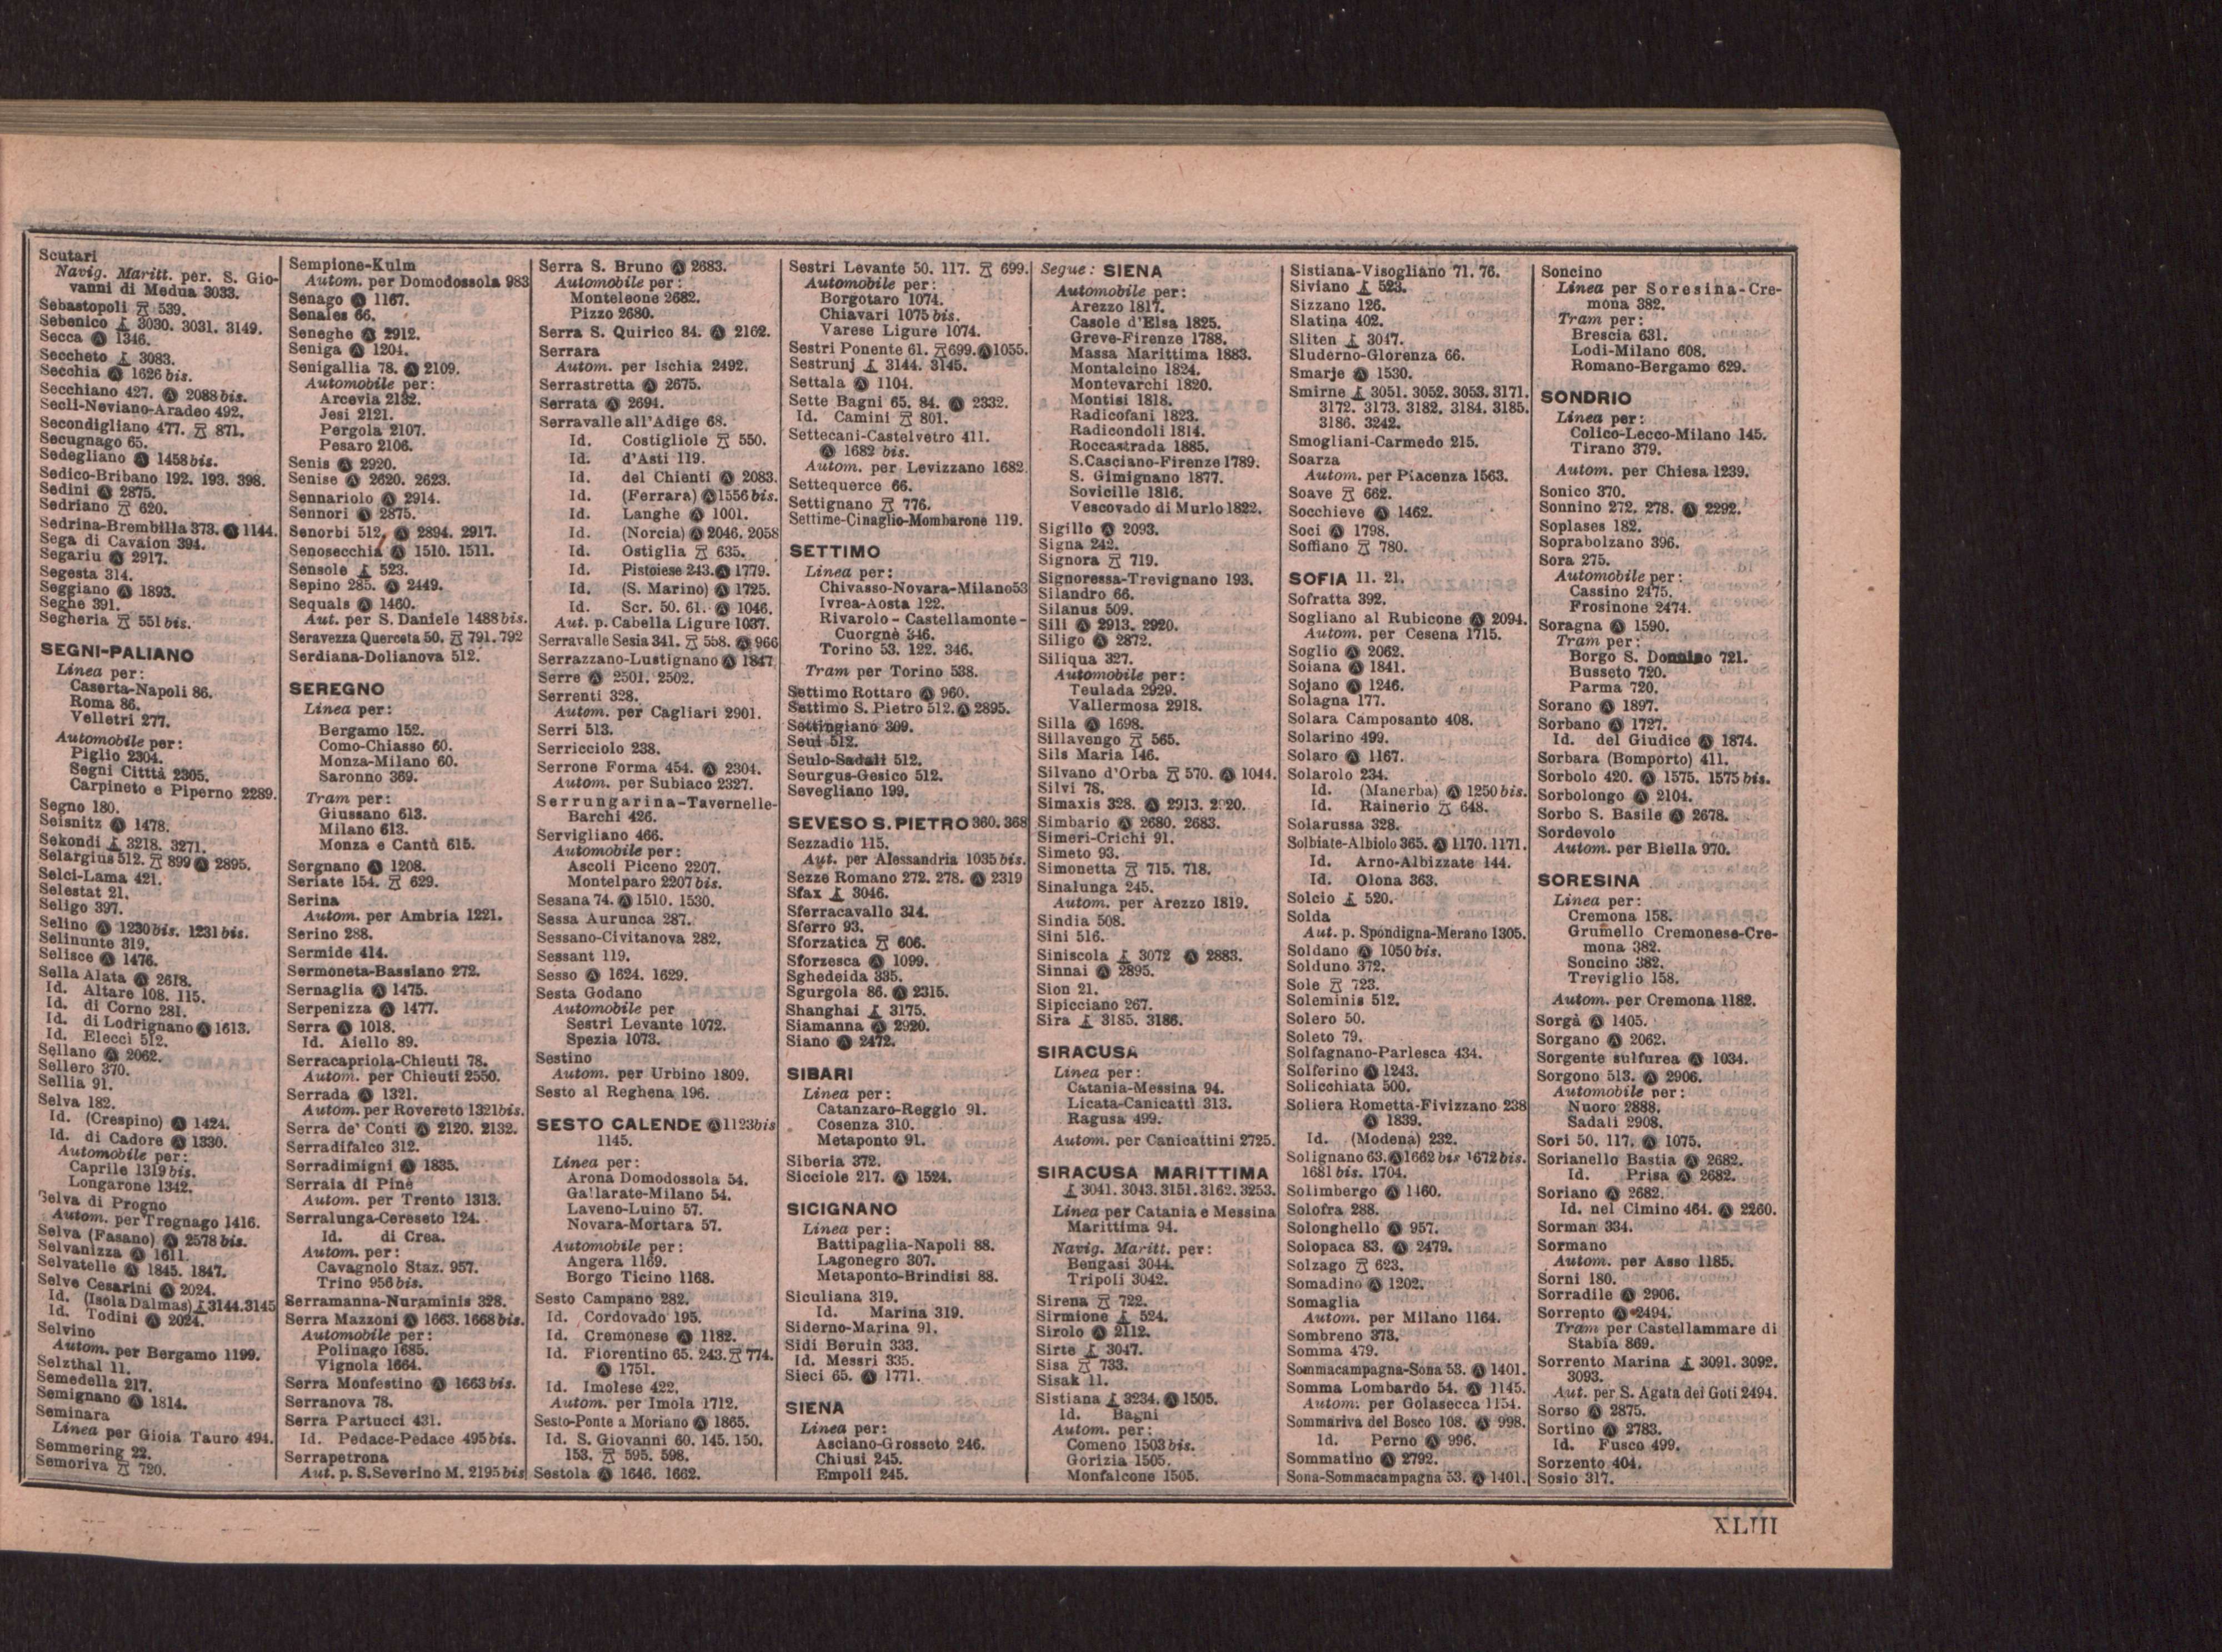 Scutari
Navig. Maritt. per. S. Gio-
vanni di Medua 3033.
Sebastopoli 539.
Sebenico 3030. 3031. 3149.
Secca Ⓐ 1346.
Seccheto 3083.
Secchia Ⓐ 1626 bis.
Secchiano 427. Ⓐ 2088 bis.
Secli-Neviano-Aradeo 492.
Secondigliano 477. 871.
Secugnago 65.
Sedegliano Ⓐ 1458 bis.
Sedico-Bribano 192. 193. 398.
Sedini Ⓐ 2875.
Sedriano 620.
Sedrina-Brembilla 373. Ⓐ 1144.
Sega di Cavaion 394.
Segariu Ⓐ 2917.
Segesta 314.
Seggiano Ⓐ 1893.
Seghe 391.
Segheria 551 bis.
SEGNI-PALIANO
Linea per:
Caserta-Napoli 86.
Roma 86.
Velletri 277.
Automobile per:
Piglio 2304.
Segni Citttà 2305.
Carpineto e Piperno 2289.
Segno 180.
Seisnitz Ⓐ 1478.
Sekondi 3218. 3271.
Selargius 512. 899 Ⓐ 2895.
Selci-Lama 421.
Selestat 21.
Seligo 397.
Selino Ⓐ 1230 bis. 1231 bis.
Selinunte 319.
Selisce Ⓐ 1476.
Sella Alata Ⓐ 2618.
Id. Altare 108. 115.
Id. di Corno 281.
Id. di Lodrignano Ⓐ 1613.
Id. Elecci 512.
Sellano Ⓐ 2062.
Sellero 370.
Sellia 91.
Selva 182.
Id. (Crespino) Ⓐ 1424.
Id. di Cadore Ⓐ 1330.
Automobile per:
Caprile 1319 bis.
Longarone 1342.
Selva di Progno
Autom. per Tregnago 1416.
Selva (Fasano) Ⓐ 2578 bis.
Selvanizza Ⓐ 1611.
Selvatelle Ⓐ 1845. 1847.
Selve Cesarini Ⓐ 2024.
Id. (Isola Dalmas) 3144.3145
Id. Todini Ⓐ 2024.
Selvino
Autom. per Bergamo 1199.
Selzthal 11.
Semedella 217.
Semignano Ⓐ 1814.
Seminara
Linea per Gioia Tauro 494.
Semmering 22.
Semoriva 720.
Sempione-Kulm
Autom. per Domodossola 983
Senago Ⓐ 1167.
Senales 66.
Seneghe Ⓐ 2912.
Seniga Ⓐ 1204.
Senigallia 78. Ⓐ 2109.
Automobile per:
Arcevia 2132.
Jesi 2121.
Pergola 2107.
Pesaro 2106.
Senis Ⓐ 2920.
Senise Ⓐ 2620. 2623.
Sennariolo Ⓐ 2914.
Sennori Ⓐ 2875.
Senorbi 512. Ⓐ 2894. 2917.
Senosecchia Ⓐ 1510. 1511.
Sensole 523.
Sepino 285. Ⓐ 2449.
Sequals Ⓐ 1460.
Aut. per S. Daniele 1488 bis.
Seravezza Querceta 50. 791. 792
Serdiana-Dolianova 512.
SEREGNO
Linea per:
Bergamo 152.
Como-Chiasso 60.
Monza-Milano 60.
Saronno 369.
Tram per:
Giussano 613.
Milano 613.
Monza e Cantù 615.
Sergnano Ⓐ 1208.
Seriate 154. 629.
Serina
Autom. per Ambria 1221.
Serino 288.
Sermide 414.
Sermoneta-Bassiano 272.
Sernaglia Ⓐ 1475.
Serpenizza Ⓐ 1477.
Serra Ⓐ 1018.
Id. Aiello 89.
Serracapriola-Chieuti 78.
Autom. per Chieuti 2550.
Serrada Ⓐ 1321.
Autom. per Rovereto 1321 bis.
Serra de' Conti Ⓐ 2120. 2132.
Serradifalco 312.
Serradimigni Ⓐ 1835.
Serraia di Piné
Autom. per Trento 1313.
Serralunga-Cereseto 124.
Id. di Crea.
Autom. per:
Cavagnolo Staz. 957.
Trino 956 bis.
Serramanna-Nuraminis 328.
Serra Mazzoni Ⓐ 1663. 1668 bis.
Automobile per:
Polinago 1685.
Vignola 1664.
Serra Monfestino Ⓐ 1663 bis.
Serranova 78.
Serra Partucci 431.
Id. Pedace-Pedace 495 bis.
Serrapetrona
Aut. p. S.Severino M. 2195 bis
Serra S. Bruno Ⓐ 2683.
Automobile per:
Monteleone 2682.
Pizzo 2680.
Serra S. Quirico 84. Ⓐ 2162.
Serrara
Autom. per Ischia 2492.
Serrastretta Ⓐ 2675.
Serrata Ⓐ 2694.
Serravalle all'Adige 68.
Id. Costigliole 550.
Id. d'Asti 119.
Id. del Chienti Ⓐ 2083.
Id. (Ferrara) Ⓐ 1556 bis.
Id. Langhe Ⓐ 1001.
Id. (Norcia) Ⓐ 2046. 2058
Id. Ostiglia 635.
Id. Pistoiese 243. Ⓐ 1779.
Id. (S. Marino) Ⓐ 1725.
Id. Scr. 50. 61. Ⓐ 1046.
Aut. p. Cabella Ligure 1037.
Serravalle Sesia 341. 558. Ⓐ 966
Serrazzano-Lustignano Ⓐ 1847
Serre Ⓐ 2501. 2502.
Serrenti 328.
Autom. per Cagliari 2901.
Serri 513.
Serricciolo 238.
Serrone Forma 454. Ⓐ 2304.
Autom. per Subiaco 2327.
Serrungarina-Tavernelle-
Barchi 426.
Servigliano 466.
Automobile per:
Ascoli Piceno 2207.
Montelparo 2207 bis.
Sesana 74. Ⓐ 1510. 1530.
Sessa Aurunca 287.
Sessano-Civitanova 282.
Sessant 119.
Sesso Ⓐ 1624. 1629.
Sesta Godano
Automobile per
Sestri Levante 1072.
Spezia 1073.
Sestino
Autom. per Urbino 1809.
Sesto al Reghena 196.
SESTO CALENDE Ⓐ 1123 bis
1145.
Linea per:
Arona Domodossola 54.
Gallarate-Milano 54.
Laveno-Luino 57.
Novara-Mortara 57.
Automobile per:
Angera 1169.
Borgo Ticino 1168.
Sesto Campano 282.
Id. Cordovado 195.
Id. Cremonese Ⓐ 1182.
Id. Fiorentino 65. 243. 774.
Ⓐ 1751.
Id. Imolese 422.
Autom. per Imola 1712.
Sesto-Ponte a Moriano Ⓐ 1865.
Id. S. Giovanni 60. 145. 150.
153. 595. 598.
Sestola Ⓐ 1646. 1662.
Sestri Levante 50. 117. 699.
Automobile per:
Borgotaro 1074.
Chiavari 1075 bis.
Varese Ligure 1074.
Sestri Ponente 61. 699. Ⓐ 1055.
Sestrunj 3144. 3145.
Settala Ⓐ 1104.
Sette Bagni 65. 84. Ⓐ 2332.
Id. Camini 801.
Settecani-Castelvetro 411.
Ⓐ 1682 bis.
Autom. per Levizzano 1682.
Settequerce 66.
Settignano 776.
Settime-Cinaglio-Mombarone 119.
SETTIMO
Linea per:
Chivasso-Novara-Milano53
Ivrea-Aosta 122.
Rivarolo-Castellamonte-
Cuorgnè 346.
Torino 53. 122. 346.
Tram per Torino 538.
Settimo Rottaro Ⓐ 960.
Settimo S. Pietro 512. Ⓐ 2895.
Settingiano 309.
Seui 512.
Seulo-Sadali 512.
Seurgus-Gesico 512.
Sevegliano 199.
SEVESO S. PIETRO 360. 368
Sezzadio 115.
Aut. per Alessandria 1035 bis.
Sezze Romano 272. 278. Ⓐ 2319
Sfax 3046.
Sferracavallo 314.
Sferro 93.
Sforzatica 606.
Sforzesca Ⓐ 1099.
Sghedeida 335.
Sgurgola 86. Ⓐ 2315.
Shanghai 3175.
Siamanna Ⓐ 2920.
Siano Ⓐ 2472.
SIBARI
Linea per:
Catanzaro-Reggio 91.
Cosenza 310.
Metaponto 91.
Siberia 372.
Sicciole 217. Ⓐ 1524.
SICIGNANO
Linea per:
Battipaglia-Napoli 88.
Lagonegro 307.
Metaponto-Brindisi 88.
Siculiana 319.
Id. Marina 319.
Siderno-Marina 91.
Sidi Beruin 333.
Id. Messri 335.
Sieci 65. Ⓐ 1771.
SIENA
Linea per:
Asciano-Grosseto 246.
Chiusi 245.
Empoli 245.
Segue: SIENA
Automobile per:
Arezzo 1817.
Casole d'Elsa 1825.
Greve-Firenze 1788.
Massa Marittima 1883.
Montalcino 1824.
Montevarchi 1820.
Montisi 1818.
Radicofani 1823.
Radicondoli 1814.
Roccastrada 1885.
S.Casciano-Firenze 1789.
S. Gimignano 1877.
Sovicille 1816.
Vescovado di Murlo 1822.
Sigillo Ⓐ 2093.
Signa 242.
Signora 719.
Signoressa-Trevignano 193.
Silandro 66.
Silanus 509.
Sili Ⓐ 2913. 2920.
Siligo Ⓐ 2872.
Siliqua 327.
Automobile per:
Teulada 2929.
Vallermosa 2918.
Silla Ⓐ 1698.
Sillavengo 565.
Sils Maria 146.
Silvano d'Orba 570. Ⓐ 1044.
Silvi 78.
Simaxis 328. Ⓐ 2913. 2920.
Simbario Ⓐ 2680. 2683.
Simeri-Crichi 91.
Simeto 93.
Simonetta 715. 718.
Sinalunga 245.
Autom. per Arezzo 1819.
Sindia 508.
Sini 516.
Siniscola 3072 Ⓐ 2883.
Sinnai Ⓐ 2895.
Sion 21.
Sipicciano 267.
Sira 3185. 3186.
SIRACUSA
Linea per:
Catania-Messina 94.
Licata-Canicattì 313.
Ragusa 499.
Autom. per Canicattini 2725.
SIRACUSA MARITTIMA
3041. 3043. 3151. 3162. 3253.
Linea per Catania e Messina
Marittima 94.
Navig. Maritt. per:
Bengasi 3044.
Tripoli 3042.
Sirena 722.
Sirmione 524.
Sirolo Ⓐ 2112.
Sirte 3047.
Sisa 733.
Sisak 11.
Sistiana 3234. Ⓐ 1505.
Id. Bagni
Autom. per:
Comeno 1503 bis.
Gorizia 1505.
Monfalcone 1505.
Sistiana-Visogliano 71. 76.
Siviano 523.
Sizzano 126.
Slatina 402.
Sliten 3047.
Sluderno-Glorenza 66.
Smarje Ⓐ 1530.
Smirne 3051. 3052. 3053. 3171.
3172. 3173. 3182. 3184. 3185.
3186. 3242.
Smogliani-Carmedo 215.
Soarza
Autom. per Piacenza 1563.
Soave 662.
Socchieve Ⓐ 1462.
Soci Ⓐ 1798.
Soffiano 780.
SOFIA 11. 21.
Sofratta 392.
Sogliano al Rubicone Ⓐ 2094.
Autom. per Cesena 1715.
Soglio Ⓐ 2062.
Soiana Ⓐ 1841.
Sojano Ⓐ 1246.
Solagna 177.
Solara Camposanto 408.
Solarino 499.
Solaro Ⓐ 1167.
Solarolo 234.
Id. (Manerba) Ⓐ 1250 bis.
Id. Rainerio 648.
Solarussa 328.
Solbiate-Albiolo 365. Ⓐ 1170. 1171.
Id. Arno-Albizzate 144.
Id. Olona 363.
Solcio 520.
Solda
Aut. p. Spondigna-Merano 1305.
Soldano Ⓐ 1050 bis.
Solduno 372.
Sole 723.
Soleminis 512.
Solero 50.
Soleto 79.
Solfagnano-Parlesca 434.
Solferino Ⓐ 1243.
Solicchiata 500.
Soliera Rometta-Fivizzano 238
Ⓐ 1839.
Id. (Modena) 232.
Solignano 63. Ⓐ 1662 bis 1672 bis.
1681 bis. 1704.
Solimbergo Ⓐ 1460.
Solofra 288.
Solonghello Ⓐ 957.
Solopaca 83. Ⓐ 2479.
Solzago 623.
Somadino Ⓐ 1202.
Somaglia
Autom. per Milano 1164.
Sombreno 373.
Somma 479.
Sommacampagna-Sona 53. Ⓐ 1401.
Somma Lombardo 54. Ⓐ 1145.
Autom. per Golasecca 1154.
Sommariva del Bosco 108. Ⓐ 998.
Id. Perno Ⓐ 996.
Sommatino Ⓐ 2792.
Sona-Sommacampagna 53. Ⓐ 1401.
Soncino
Linea per Soresina-Cre-
mona 382.
Tram per:
Brescia 631.
Lodi-Milano 608.
Romano-Bergamo 629.
SONDRIO
Linea per:
Colico-Lecco-Milano 145.
Tirano 379.
Autom. per Chiesa 1239.
Sonico 370.
Sonnino 272. 278. Ⓐ 2292.
Soplases 182.
Soprabolzano 396.
Sora 275.
Automobile per:
Cassino 2475.
Frosinone 2474.
Soragna Ⓐ 1590.
Tram per:
Borgo S. Donnino 721.
Busseto 720.
Parma 720.
Sorano Ⓐ 1897.
Sorbano Ⓐ 1727.
Id. del Giudice Ⓐ 1874.
Sorbara (Bomporto) 411.
Sorbolo 420. Ⓐ 1575. 1575 bis.
Sorbolongo Ⓐ 2104.
Sorbo S. Basile Ⓐ 2678.
Sordevolo
Autom. per Biella 970.
SORESINA
Linea per:
Cremona 158.
Grumello Cremonese-Cre-
mona 382.
Soncino 382.
Treviglio 158.
Autom. per Cremona 1182.
Sorgà Ⓐ 1405.
Sorgano Ⓐ 2062.
Sorgente sulfurea Ⓐ 1034.
Sorgono 513. Ⓐ 2906.
Automobile per:
Nuoro 2888.
Sadali 2908.
Sori 50. 117. Ⓐ 1075.
Sorianello Bastia Ⓐ 2682.
Id. Prisa Ⓐ 2682.
Soriano Ⓐ 2682.
Id. nel Cimino 464. Ⓐ 2260.
Sorman 334.
Sormano
Autom. per Asso 1185.
Sorni 180.
Sorradile Ⓐ 2906.
Sorrento Ⓐ 2494.
Tram per Castellammare di
Stabia 869.
Sorrento Marina 3091. 3092.
3093.
Aut. per S. Agata dei Goti 2494.
Sorso Ⓐ 2875.
Sortino Ⓐ 2783.
Id. Fusco 499.
Sorzento 404.
Sosio 317.
XLIII